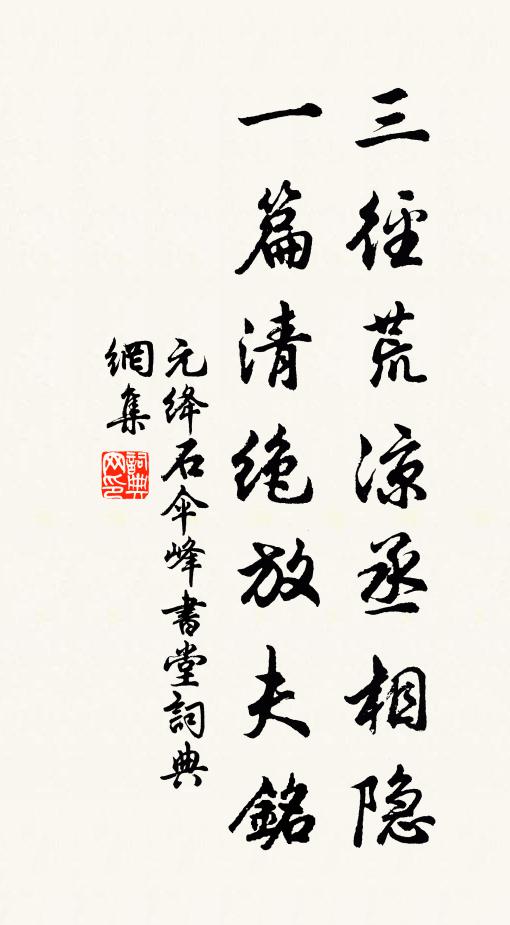 三徑荒涼丞相隐
一篇清绝放夫銘
元绛石伞峰書堂詞典
網集
詞典網印